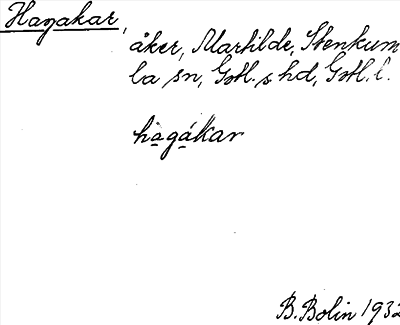 Hagakar,
åker, Martilde, Stenkum
la sn, Gotl. s hd, Gotl. l.
hagákar
B. Bolin 1932